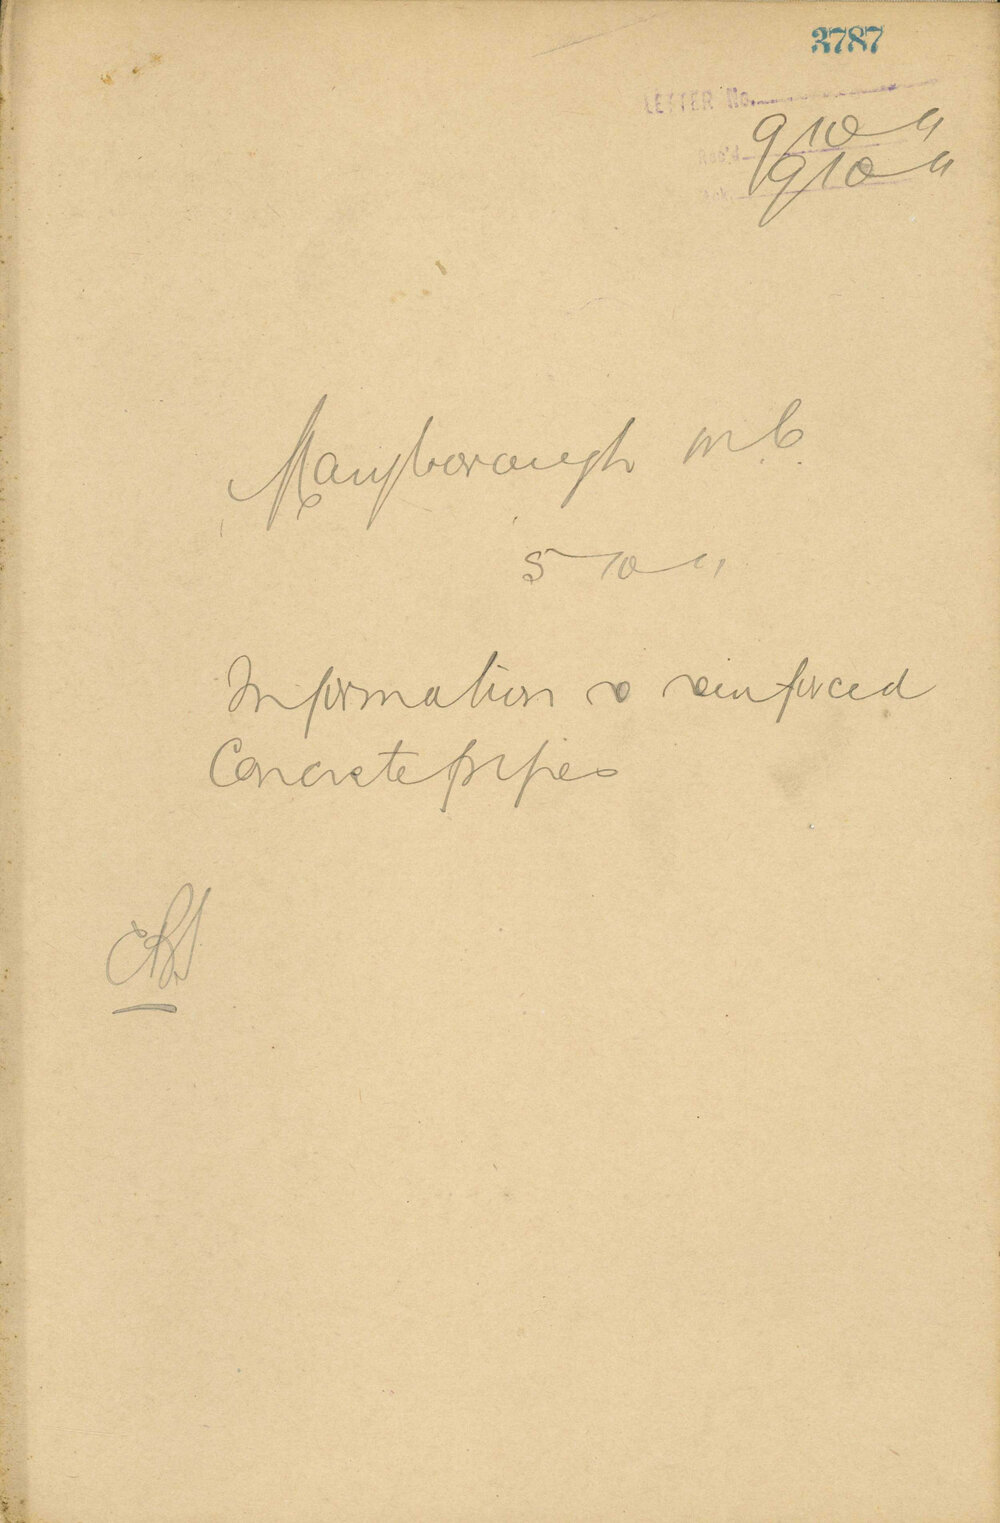 3787
LETTER No.
Rec'd 9 10 11
Ack. 9 10 11
Maryborough M.C.
5 10 11
Information re reinforced
Concrete pipes